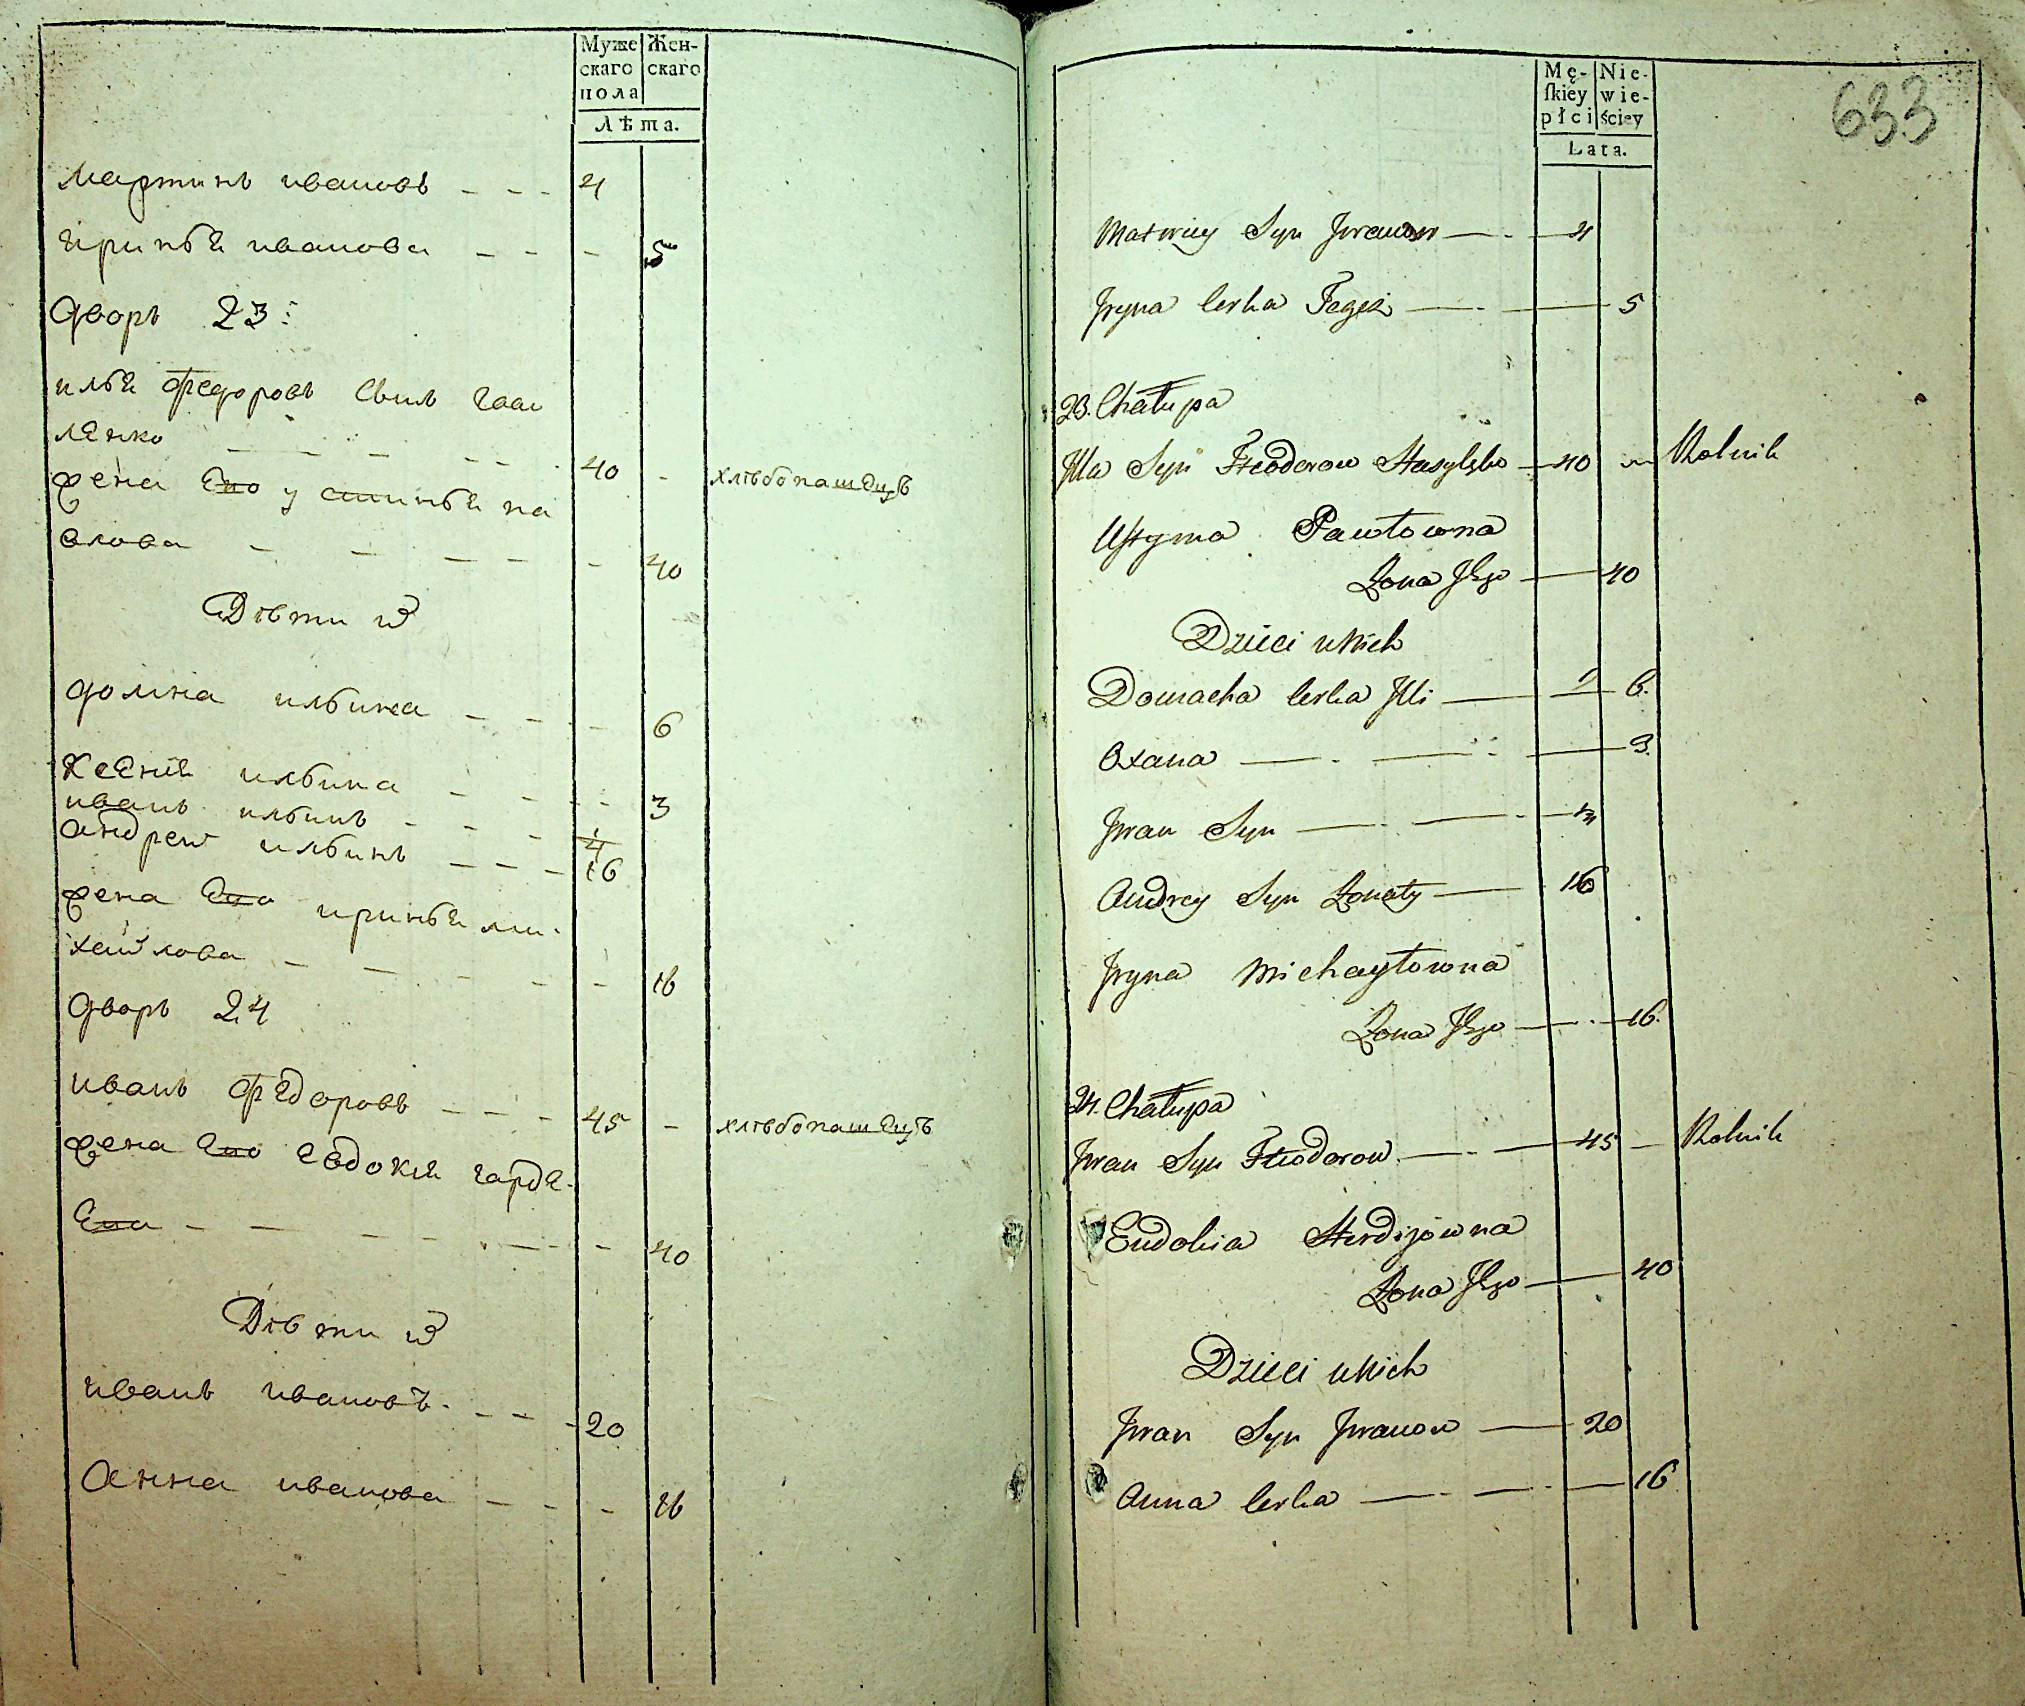 Муже Жен-
скаго скаго
пола
Лѣта.
Мартинъ ивановъ - - - 4
ириньѣ иванова - - - 5
дворъ 23:
илья федоровъ сынъ
ленко - - - - - 40 - хлѣбопашецъ
жена Его устиньѣ па
влова - - - - - 40
Дѣти ихъ
домна ильина - - - 6
Ксенія ильина - - - 3
иванъ ильинъ - - - 4
андрей ильинъ - - - 16
жена Его ириньѣ ми-
хайлова - - - - - 16
дворъ 24
иванъ федоровъ - - - 45 - хлѣбопашецъ
жена Его Евдокія гордѣ-
Ева - - - - - - 40
Дѣти ихъ
иванъ ивановъ - - - 20
Анна иванова - - - - 16
633
Mę- Nie-
ſkiéy wie-
płci ściey
Lata.
Matwiey Syn Jwanow — 4
Jryna Corka Tegoż — 5
23. Chałupa
Jlla Syn Fteodorow — 40 Rolnik
Ustyma Pawłowna
Zona Jego — 40
Dzieci u Nich
Domacha Corka Jlli — 6.
Oxana — 3.
Jwan Syn — 4
Andrey Syn Zonaty — 16
Jryna Michayłowna
Zona Jego — 16.
24. Chałupa
Jwan Syn Fteodorow — 45 — Rolnik
Eudokia Hordijowna
Zona Jego — 40
Dzieci u Nich
Jwan Syn Jwanow — 20
Anna Corka — 16